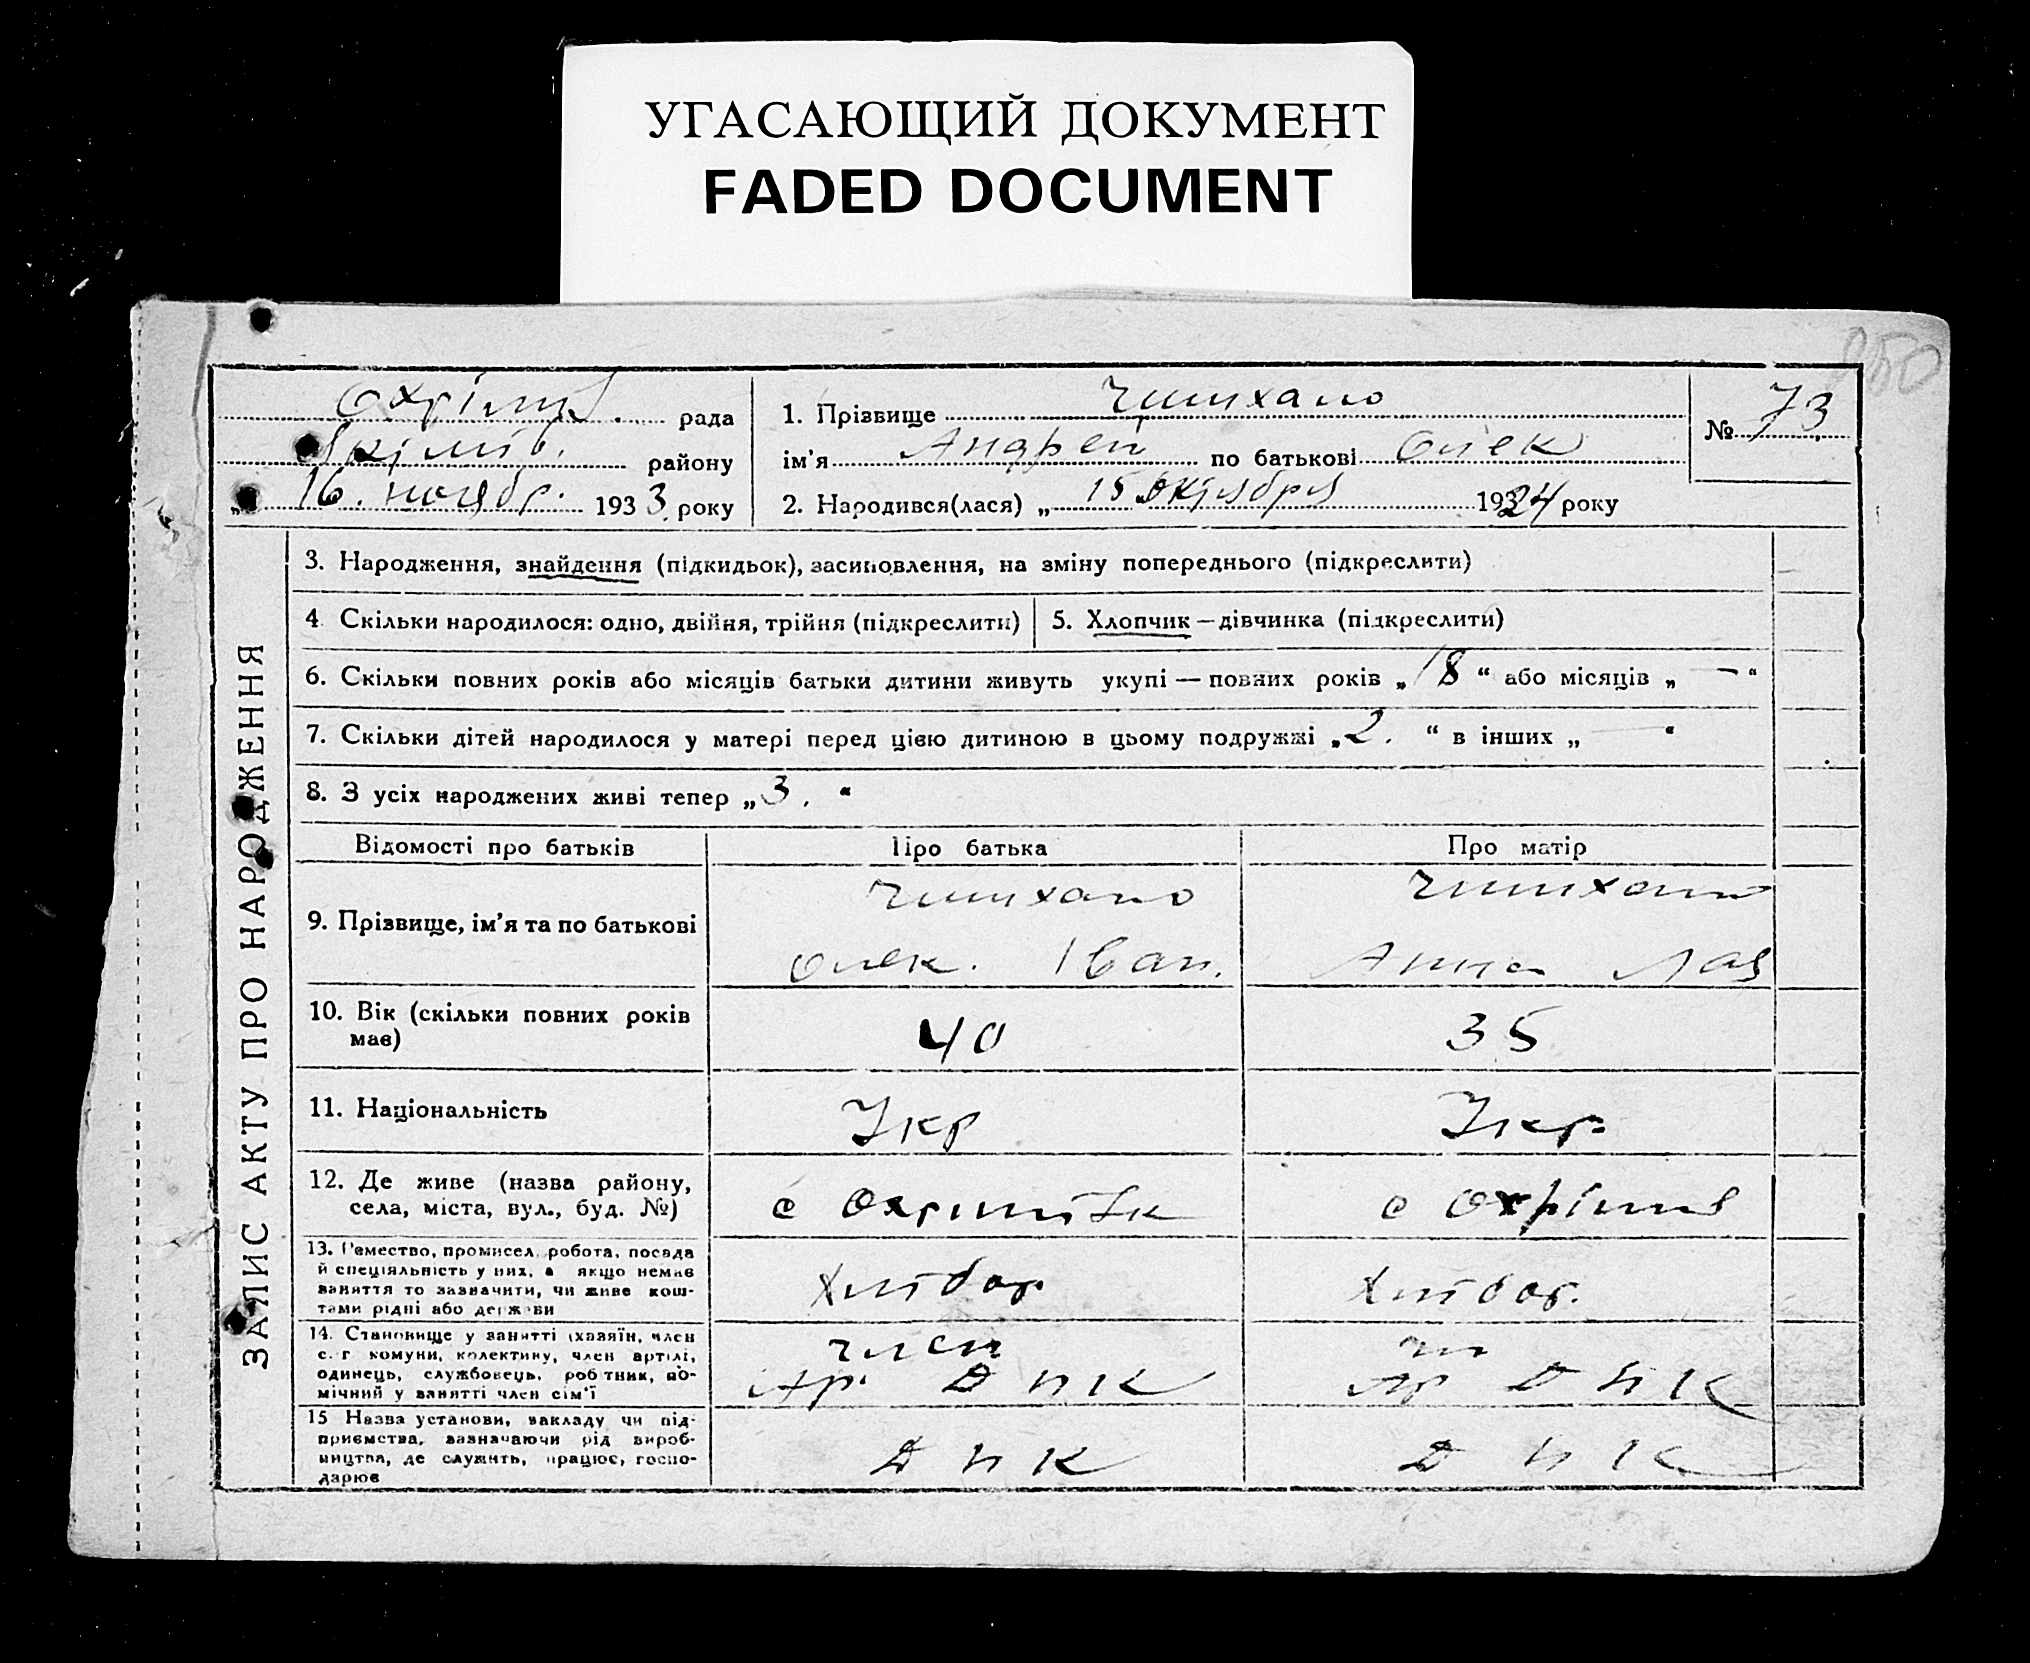 УГАСАЮЩИЙ ДОКУМЕНТ
FADED DOCUMENT
рада
району
16. ноябр. 1933 року
1. Прізвище
ім'я Андрей по батькові Олек
2. Народився(лася) „15 октября 1924 року
№ 73
ЗАПИС АКТУ ПРО НАРОДЖЕННЯ
3. Народження, знайдення (підкидьок), засиновлення, на зміну попереднього (підкреслити)
4 Скільки народилося: одно, двійня, трійня (підкреслити)
5. Хлопчик — дівчинка (підкреслити)
6. Скільки повних років або місяців батьки дитини живуть укупі — повних років „18“ або місяців „—“
7. Скільки дітей народилося у матері перед цією дитиною в цьому подружжі „2.“ в інших „—“
8. З усіх народжених живі тепер „3.“
Відомості про батьків
Про батька
Про матір
9. Прізвище, ім'я та по батькові
Олек. Іван.
Анна
10. Вік (скільки повних років
має)
40
35
11. Національність
Укр
Укр.
12. Де живе (назва району,
села, міста, вул., буд. №)
с
с
13. Ремество, промисел, робота, посада
й спеціяльність у них, а якщо немає
заняття то зазначити, чи живе кош-
тами рідні або держави
Хлібор
Хлібор.
14. Становище у занятті (хазяїн, член
с. г комуни, колективу, член артілі,
одинець, службовець, робітник, по-
мічний у занятті член сім'ї
член
Ар.
чл
Ар
15 Назва установи, закладу чи під-
приємства, зазначаючи рід вироб-
ництва, де служить, працює, госпо-
дарює